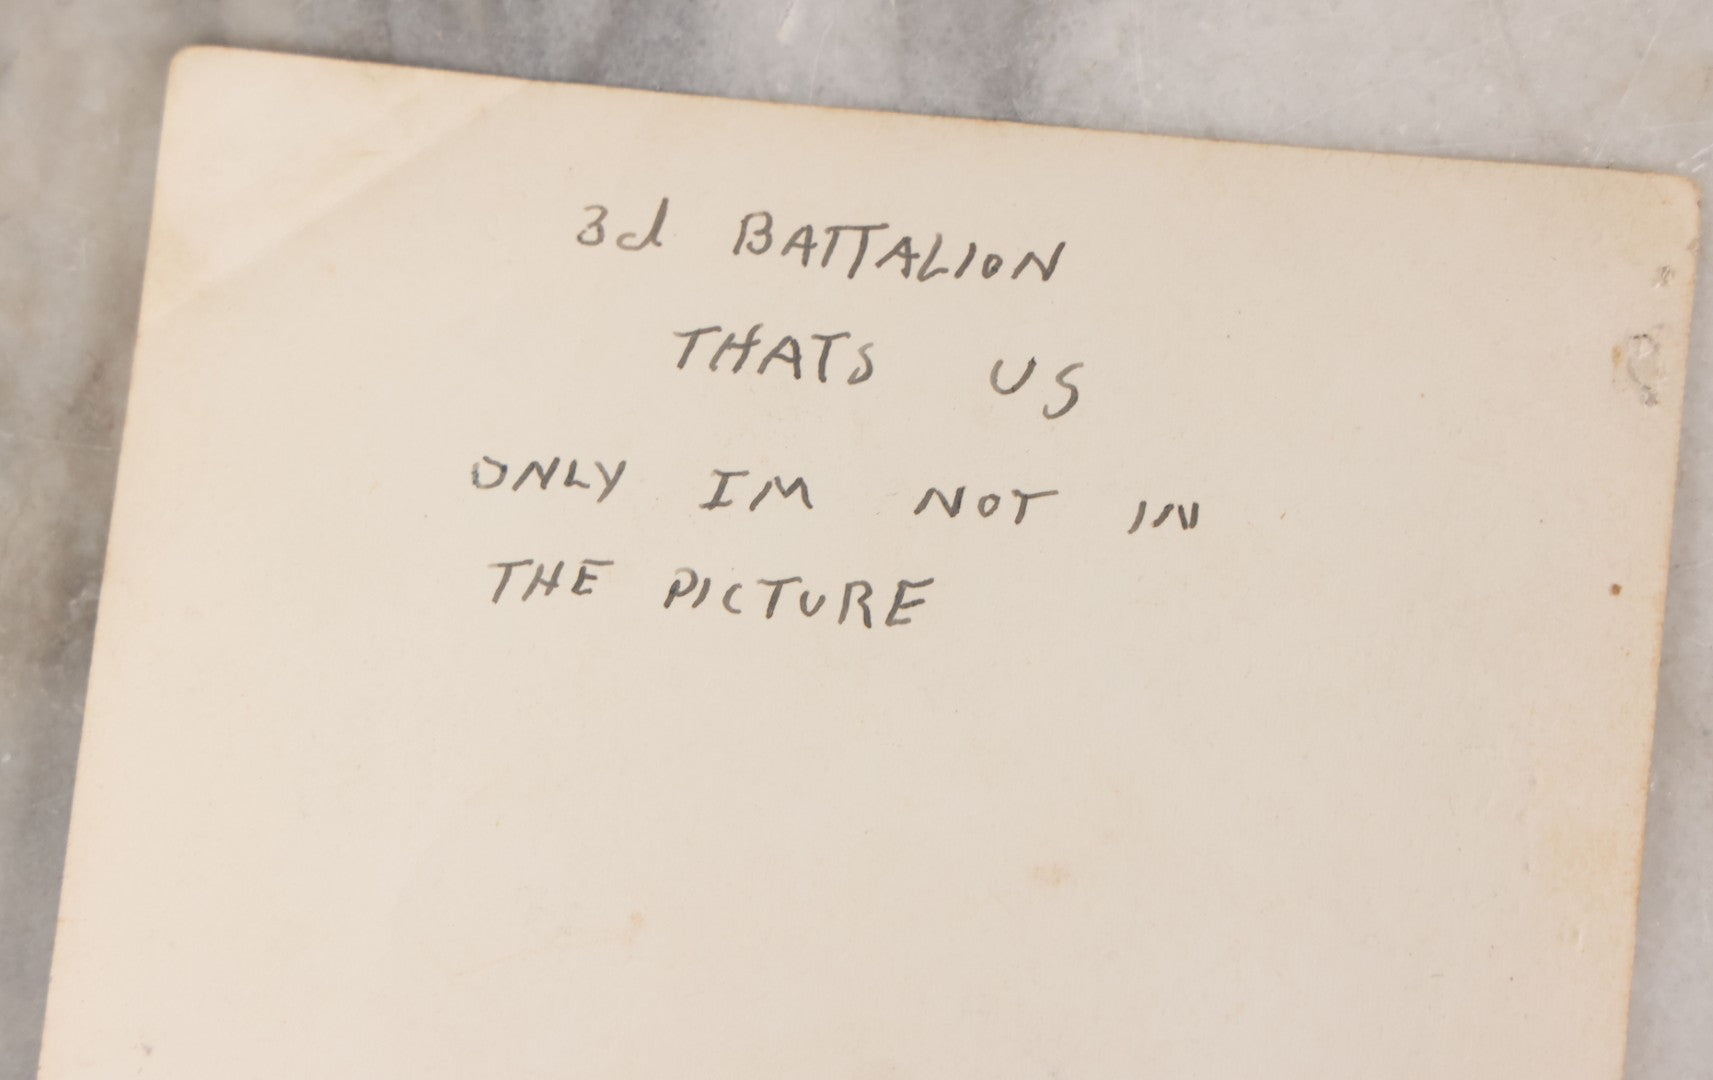 3d BATTALION
THATS US
ONLY IM NOT IN
THE PICTURE